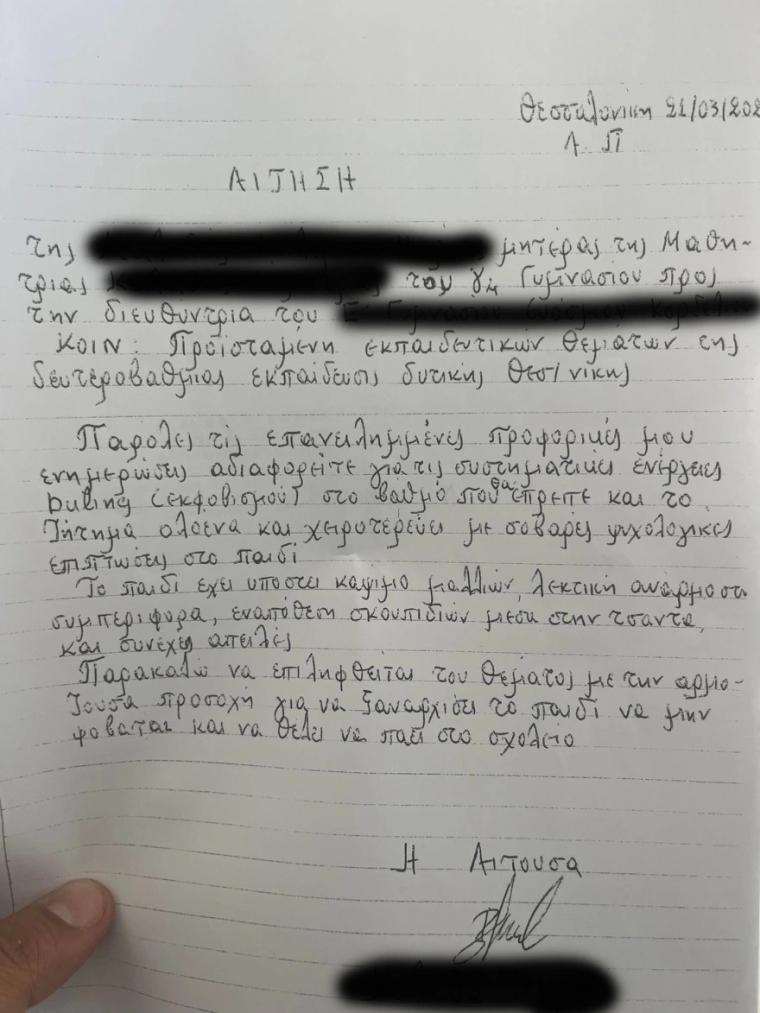 Θεσσαλονίκη 21/03/202
Α Π
ΑΙΤΗΣΗ
της μητέρας της Μαθη-
τριας του γ4 Γυμνασιου προς
την διευθυντρια του
ΚΟΙΝ: Προϊσταμένη εκπαιδευτικών θεμάτων της
δευτεροβαθμιας εκπαίδευσις δυτικης Θεσ/νίκης
Παρόλες τις επανειλημμένες προφορικές μου
ενημερώσεις αδιαφορείτε για τις συστηματικές ενέργειες
buling (εκφοβισμού) στο βαθμό που θα έπρεπε και το
Ζήτημα ολοενα και χειροτερεύει με σοβαρές ψυχολογικες
επιπτώσεις στο παιδί
Το παιδι έχει υποστει καψιμο μαλλιών, λεκτική ανάρμοστη
συμπεριφορα, εναπόθεση σκουπιδιών μεσα στην τσαντα,
και συνέχες απειλές
Παρακαλώ να επιληφθειται του θέματος με την αρμο-
Ζουσα προσοχή για να ξαναρχισει το παιδί να μην
φοβαται και να θέλει να παει στο σχολειο
Η Αιτουσα